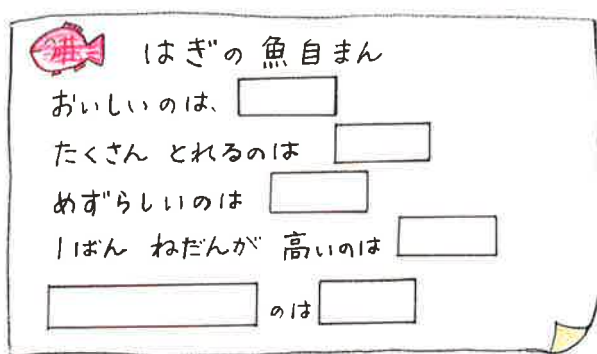 はぎの魚自まん
おいしいのは、
たくさん とれるのは
めずらしいのは
1ばん ねだんが 高いのは
のは